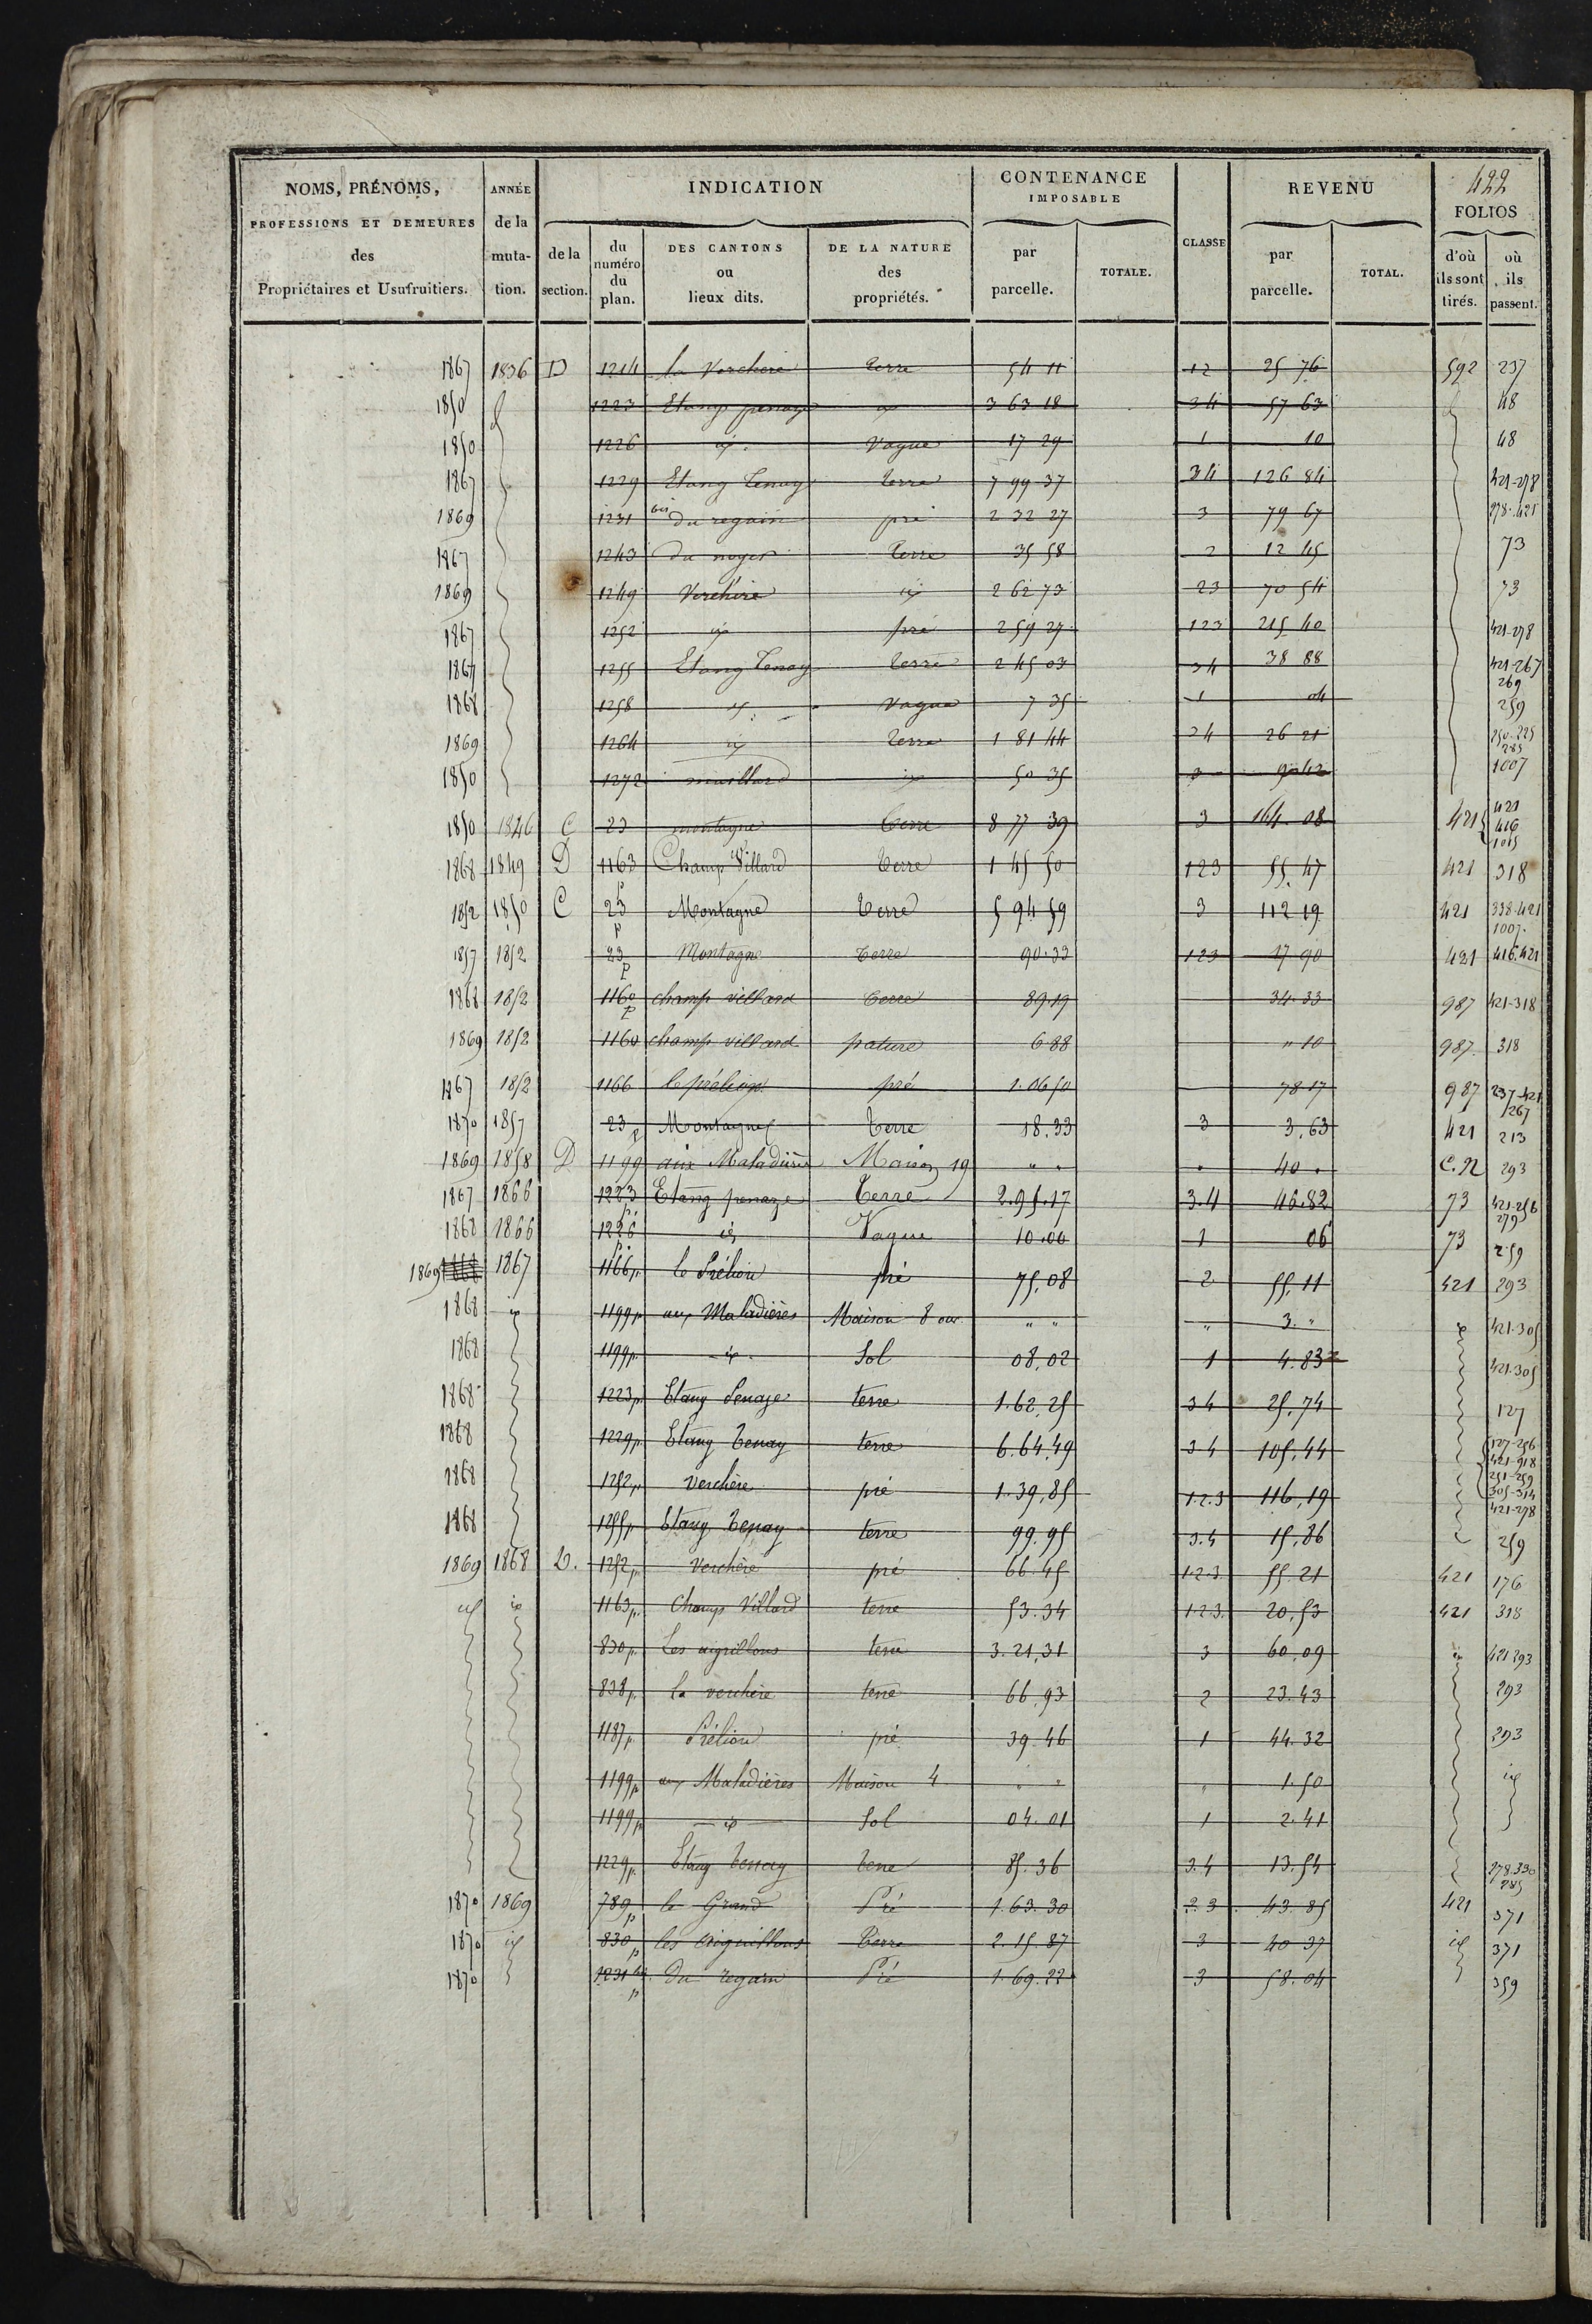 422
NOMS, PRÉNOMS, PROFESSIONS ET DEMEURES des Propriétaires et Usufruitiers.
ANNÉE de la muta- tion.
INDICATION
de la section.
du numéro du plan.
DES CANTONS ou lieux dits.
DE LA NATURE des propriétés.
CONTENANCE IMPOSABLE
par parcelle.
TOTALE.
CLASSE
REVENU
par parcelle.
TOTAL.
FOLIOS
d'où ils sont tirés.
où ils passent.
1867 1836 D 1214 la Verchere terre 54 11 12 25 76 592 237
1850 1223 Etang penaze id 3 63 18 34 57 63 48
1850 1226 id. Vague 17 29 1 10 48
1867 1229 Etang Tenay terre 7 99 37 34 126 84 421-278
1869 1231 bis du regain pré 2 32 27 3 79 67 278-421
1867 1243 du noyer terre 35 58 2 12 45 73
1869 1249 Verchère id 2 62 73 23 70 54 73
1867 1252 id pré 2 59 27 123 215 40 421-278
1867 1255 Etang Tenay terre 2 45 03 34 38 88 421-267 269
1868 1258 id. Vague 7 35 1 04 259
1869 1264 id terre 1 81 44 24 26 21 250-225 285
1850 1272 maillard id 50 35 3 9 42 1007
1850 1846 C 23 montagne terre 8 77 39 3 164 08 421 421 416 1015
1868 1849 D 1163 Champ Villard terre 1 45 50 123 55 47 421 318
1852 1850 C 23 p Montagne terre 5 94 59 3 112 19 421 338-421 1007
1857 1852 23 p Montagne terre 90.33 123 17 90 421 416.421
1868 1852 1160 p champ villard terre 89.19 34.33 987 421-318
1869 1852 1160 champ villard pature 6.88 " 10 987 318
1867 1852 1166 le prélion pré 1.06 50 78 17 987 237-421 267
1870 1857 23 p Montagne terre 18.33 3 3,63 421 213
1869 1858 D 1199 aux Maladières Maison 19 " " " 40 . C.N 293
1867 1866 1223 p. Etang penaze terre 2.95.17 3.4 46.82 73 421-256 279
1868 1866 1226 p. id Vague 10.00 1 06 73 259
1869 1867 1166 p. le Prélion pré 75,08 2 55,11 421 293
1868 id 1199 p. aux Maladières Maison 8 ouv. " " " 3. " id 421.305
1868 1199 p. id. Sol 08,02 1 4.83 421.305
1868 1223 p. Etang Penaze terre 1.62,25 34 25,74 127
1868 1229 p. Etang Tenay terre 6.64,49 34 105,44 127-256 421-918 251-259 305-314
1868 1252 p. Verchère pré 1.39,85 1.2.3 116,19 421-278
1868 1255 p. Etang Tenay terre 99.95 3.4 15,86 259
1869 1868 D. 1252 p. Verchère pré 66.45 1.2.3. 55.21 421 176
id id 1163 p. Champ Villard terre 53.34 1.2.3. 20,53 421 318
830 p. Les aigrillons terre 3.21,31 3 60,09 id 421 293
838 p. la verchère terre 66,93 2 23.43 293
1187 p. Prélion pré 39.46 1 44.32 293
1199 p aux Maladières Maison 4 " " " 1.50 id
1199 p id Sol 04.01 1 2.41
1229 p. Etang Tenay terre 85.36 3.4 13.54 278.330 285
1870 1869 789 p le Grand Pré 1.63.30 2.3 43.85 421 371
1870 id 830 p les aiguillons Terre 2.15.87 3 40 37 id 371
1870 1231 bis p Du regain Pré 1.69.22 3 58.04 359